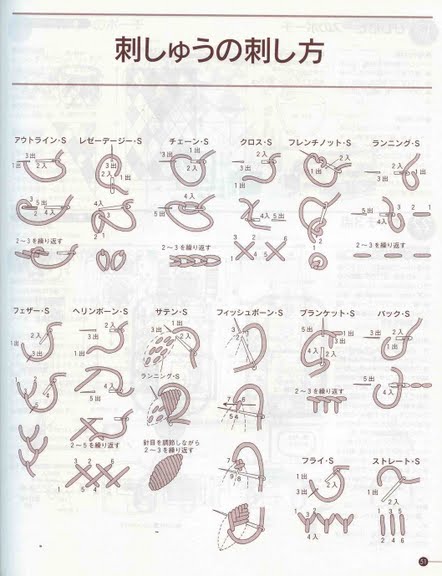 刺しゅうの刺し方
アウトライン・S
レゼーデージー・S
チェーン・S
クロス・S
フレンチノット・S
ランニング・S
3出 2入 1出
3出 2入 1出
3出 1出 2入
3出 2入 1出
1出 2入
2入 3出 1出
3 5出 2 4入
4入 2 1
4入 5出
4入 5出
5出 3 2 1
2〜3を繰り返す
2〜3を繰り返す
2〜3を繰り返す
3 2 6 1 4 5
フェザー・S
ヘリンボーン・S
サテン・S
フィッシュボーン・S
ブランケット・S
バック・S
2入 1出 3出
3出 2入 1出
2入 1出 3出
1出 3 2
5出 1出 3出 2入 4入
3出 2入 1出
ランニング・S
5出
5出 4入
2〜5を繰り返す
針目を調節しながら
2〜3を繰り返す
2〜3を繰り返す
3 2 6 1 5 4
フライ・S
ストレート・S
1出 2入 3出
1出 2入
4入
2 4 6
1 3 5
51